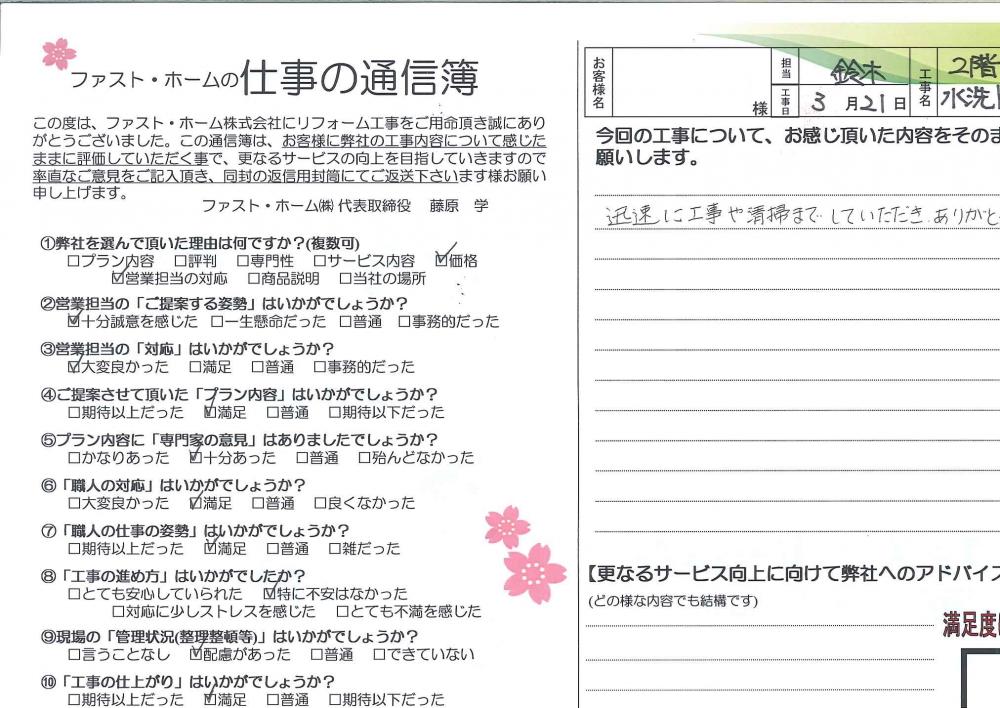 ファスト・ホームの仕事の通信簿
この度は、ファスト・ホーム株式会社にリフォーム工事をご用命頂き誠にあり
がとうございました。この通信簿は、お客様に弊社の工事内容について感じた
ままに評価していただく事で、更なるサービスの向上を目指していきますので
率直なご意見をご記入頂き、同封の返信用封筒にてご返送下さいます様お願い
申し上げます。
ファスト・ホーム㈱ 代表取締役 藤原 学
①弊社を選んで頂いた理由は何ですか?(複数可)
□プラン内容 □評判 □専門性 □サービス内容 ☑価格
☑営業担当の対応 □商品説明 □当社の場所
②営業担当の「ご提案する姿勢」はいかがでしょうか?
☑十分誠意を感じた □一生懸命だった □普通 □事務的だった
③営業担当の「対応」はいかがでしょうか?
☑大変良かった □満足 □普通 □事務的だった
④ご提案させて頂いた「プラン内容」はいかがでしょうか?
□期待以上だった ☑満足 □普通 □期待以下だった
⑤プラン内容に「専門家の意見」はありましたでしょうか?
□かなりあった ☑十分あった □普通 □殆んどなかった
⑥「職人の対応」はいかがでしょうか?
□大変良かった ☑満足 □普通 □良くなかった
⑦「職人の仕事の姿勢」はいかがでしょうか?
□期待以上だった ☑満足 □普通 □雑だった
⑧「工事の進め方」はいかがでしたか?
□とても安心していられた ☑特に不安はなかった
□対応に少しストレスを感じた □とても不満を感じた
⑨現場の「管理状況(整理整頓等)」はいかがでしょうか?
□言うことなし ☑配慮があった □普通 □できていない
⑩「工事の仕上がり」はいかがでしょうか?
□期待以上だった ☑満足 □普通 □期待以下だった
お客様名 様 担当 鈴木 工事名 2階
工事日 3月21日 水洗
今回の工事について、お感じ頂いた内容をそのま
願いします。
迅速に工事や清掃までしていただき、ありがと
【更なるサービス向上に向けて弊社へのアドバイス
(どの様な内容でも結構です)
満足度